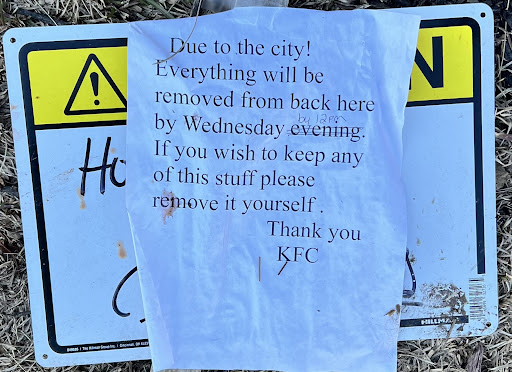 Due to the city!
Everything will be
removed from back here
by 12pm
by Wednesday evening.
If you wish to keep any
of this stuff please
remove it yourself .
Thank you
KFC
N
Ho
HILLMAN